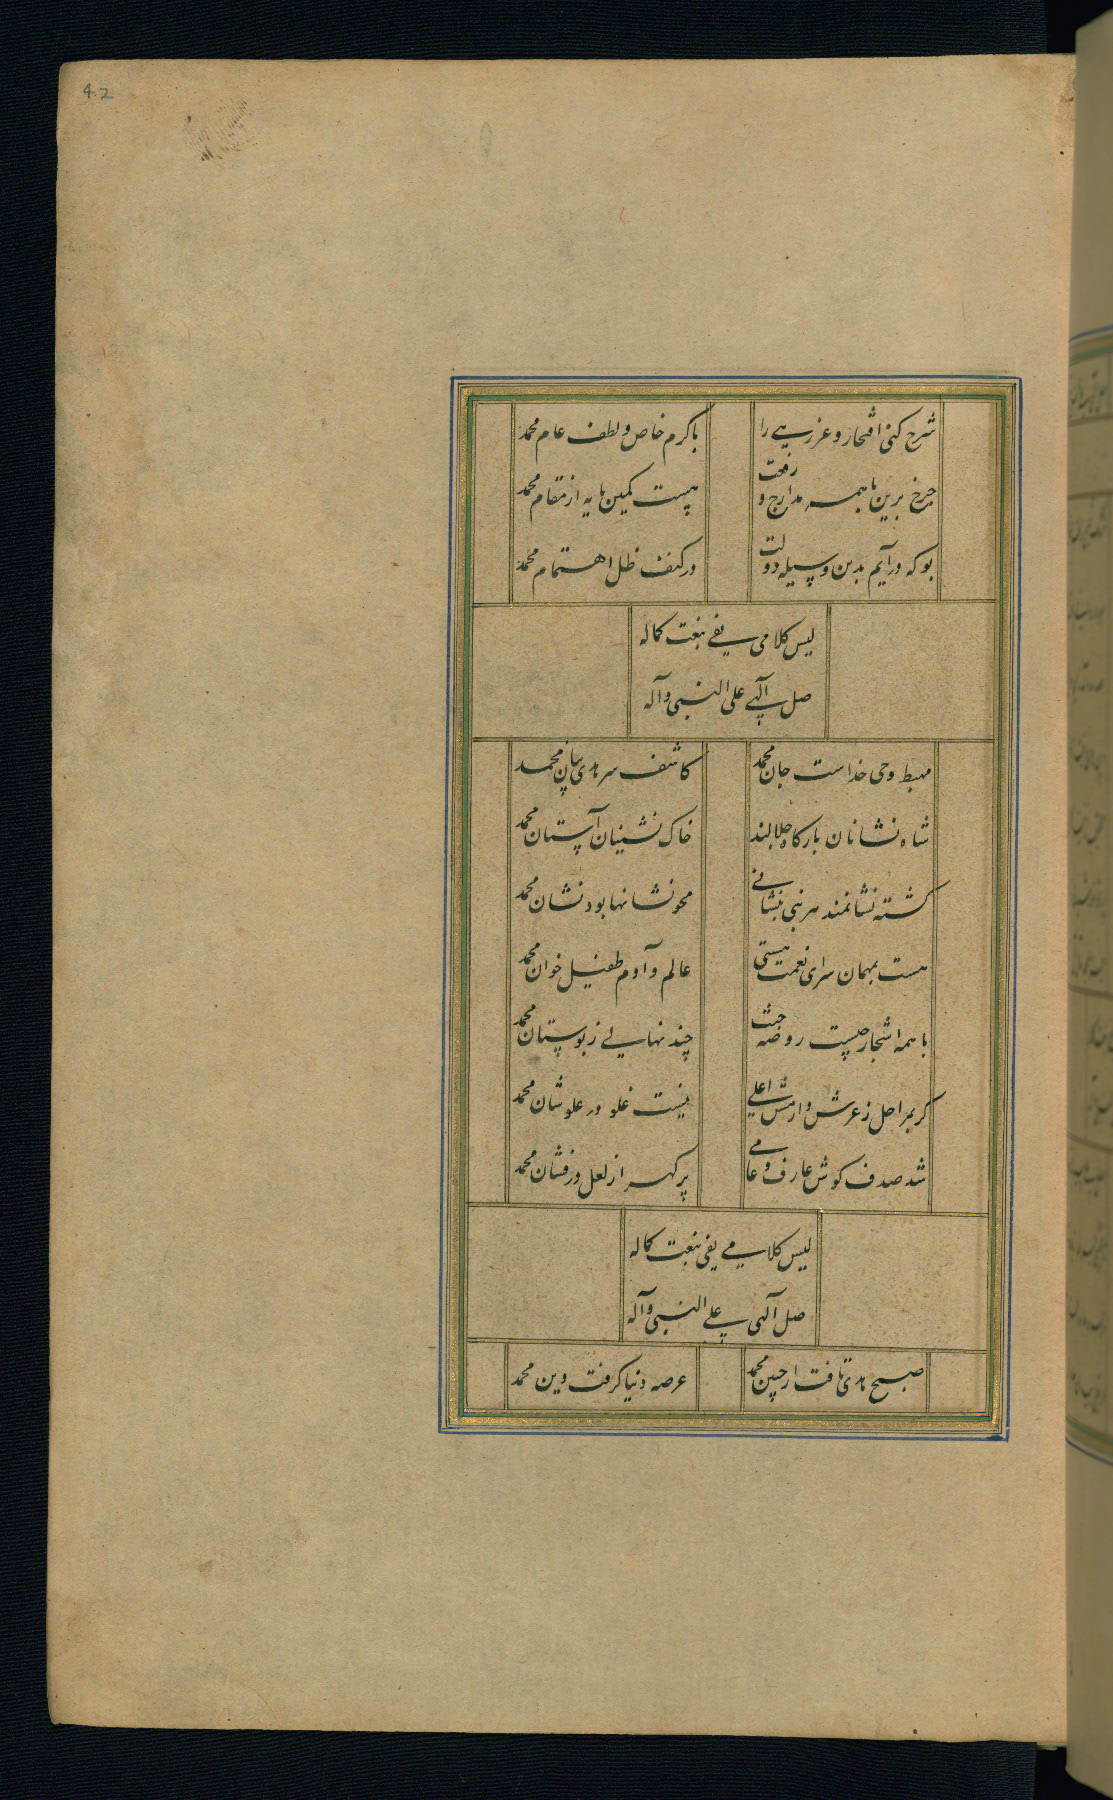 42
شرح کنی افتخار و عزرهی را با کرم خاص و لطف عام محمد
چرخ برین با همه مدارج و رفعت هست کمین پایه از مقام محمد
بو که درآیم بدین وسیله دولت در کنف ظل اهتمام محمد
لیس کلامی یفی بنعت کماله
صل الهی علی النبی وآله
مهبط وحی خداست جان محمد کاشف سر هدی بیان محمد
شاه نشانان بارگاه جلالند خاک نشینان آستان محمد
گشته نشانمند هر نبی بنشانی محو نشانها بود نشان محمد
هست بمهمان سرای نعمت هستی عالم و آدم طفیل خوان محمد
با همه اشجار چیست روضه جنت چند نهالی ز بوستان محمد
کر بمراحل ز عرش دارمش اعلی نیست غلو در علو شان محمد
شد صدف کوش عارف و عامی پر کهر از لعل درفشان محمد
لیس کلامی یفی بنعت کماله
صل الهی علی النبی وآله
صبح هدی تافت از جبین محمد عرصه دنیا کرفت دین محمد